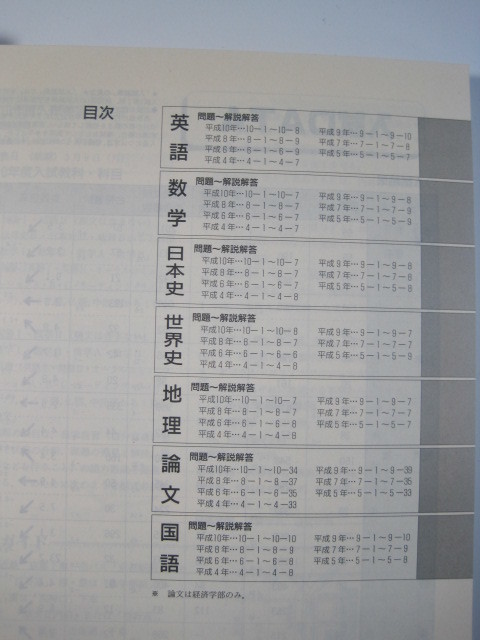 目次
英語
問題～解説解答
平成10年…10－1～10－8 平成9年…9－1～9－10
平成8年…8－1～8－9 平成7年…7－1～7－8
平成6年…6－1～6－9 平成5年…5－1～5－7
平成4年…4－1～4－7
数学
問題～解説解答
平成10年…10－1～10－7 平成9年…9－1～9－8
平成8年…8－1～8－7 平成7年…7－1～7－9
平成6年…6－1～6－7 平成5年…5－1～5－9
平成4年…4－1～4－7
日本史
問題～解説解答
平成10年…10－1～10－7 平成9年…9－1～9－8
平成8年…8－1～8－7 平成7年…7－1～7－8
平成6年…6－1～6－7 平成5年…5－1～5－8
平成4年…4－1～4－8
世界史
問題～解説解答
平成10年…10－1～10－8 平成9年…9－1～9－7
平成8年…8－1～8－7 平成7年…7－1～7－7
平成6年…6－1～6－6 平成5年…5－1～5－9
平成4年…4－1～4－8
地理
問題～解説解答
平成10年…10－1～10－7 平成9年…9－1～9－7
平成8年…8－1～8－7 平成7年…7－1～7－7
平成6年…6－1～6－8 平成5年…5－1～5－7
平成4年…4－1～4－8
論文
問題～解説解答
平成10年…10－1～10－34 平成9年…9－1～9－39
平成8年…8－1～8－37 平成7年…7－1～7－35
平成6年…6－1～6－35 平成5年…5－1～5－33
平成4年…4－1～4－33
国語
問題～解説解答
平成10年…10－1～10－10 平成9年…9－1～9－10
平成8年…8－1～8－9 平成7年…7－1～7－9
平成6年…6－1～6－8 平成5年…5－1～5－8
平成4年…4－1～4－8
※ 論文は経済学部のみ。